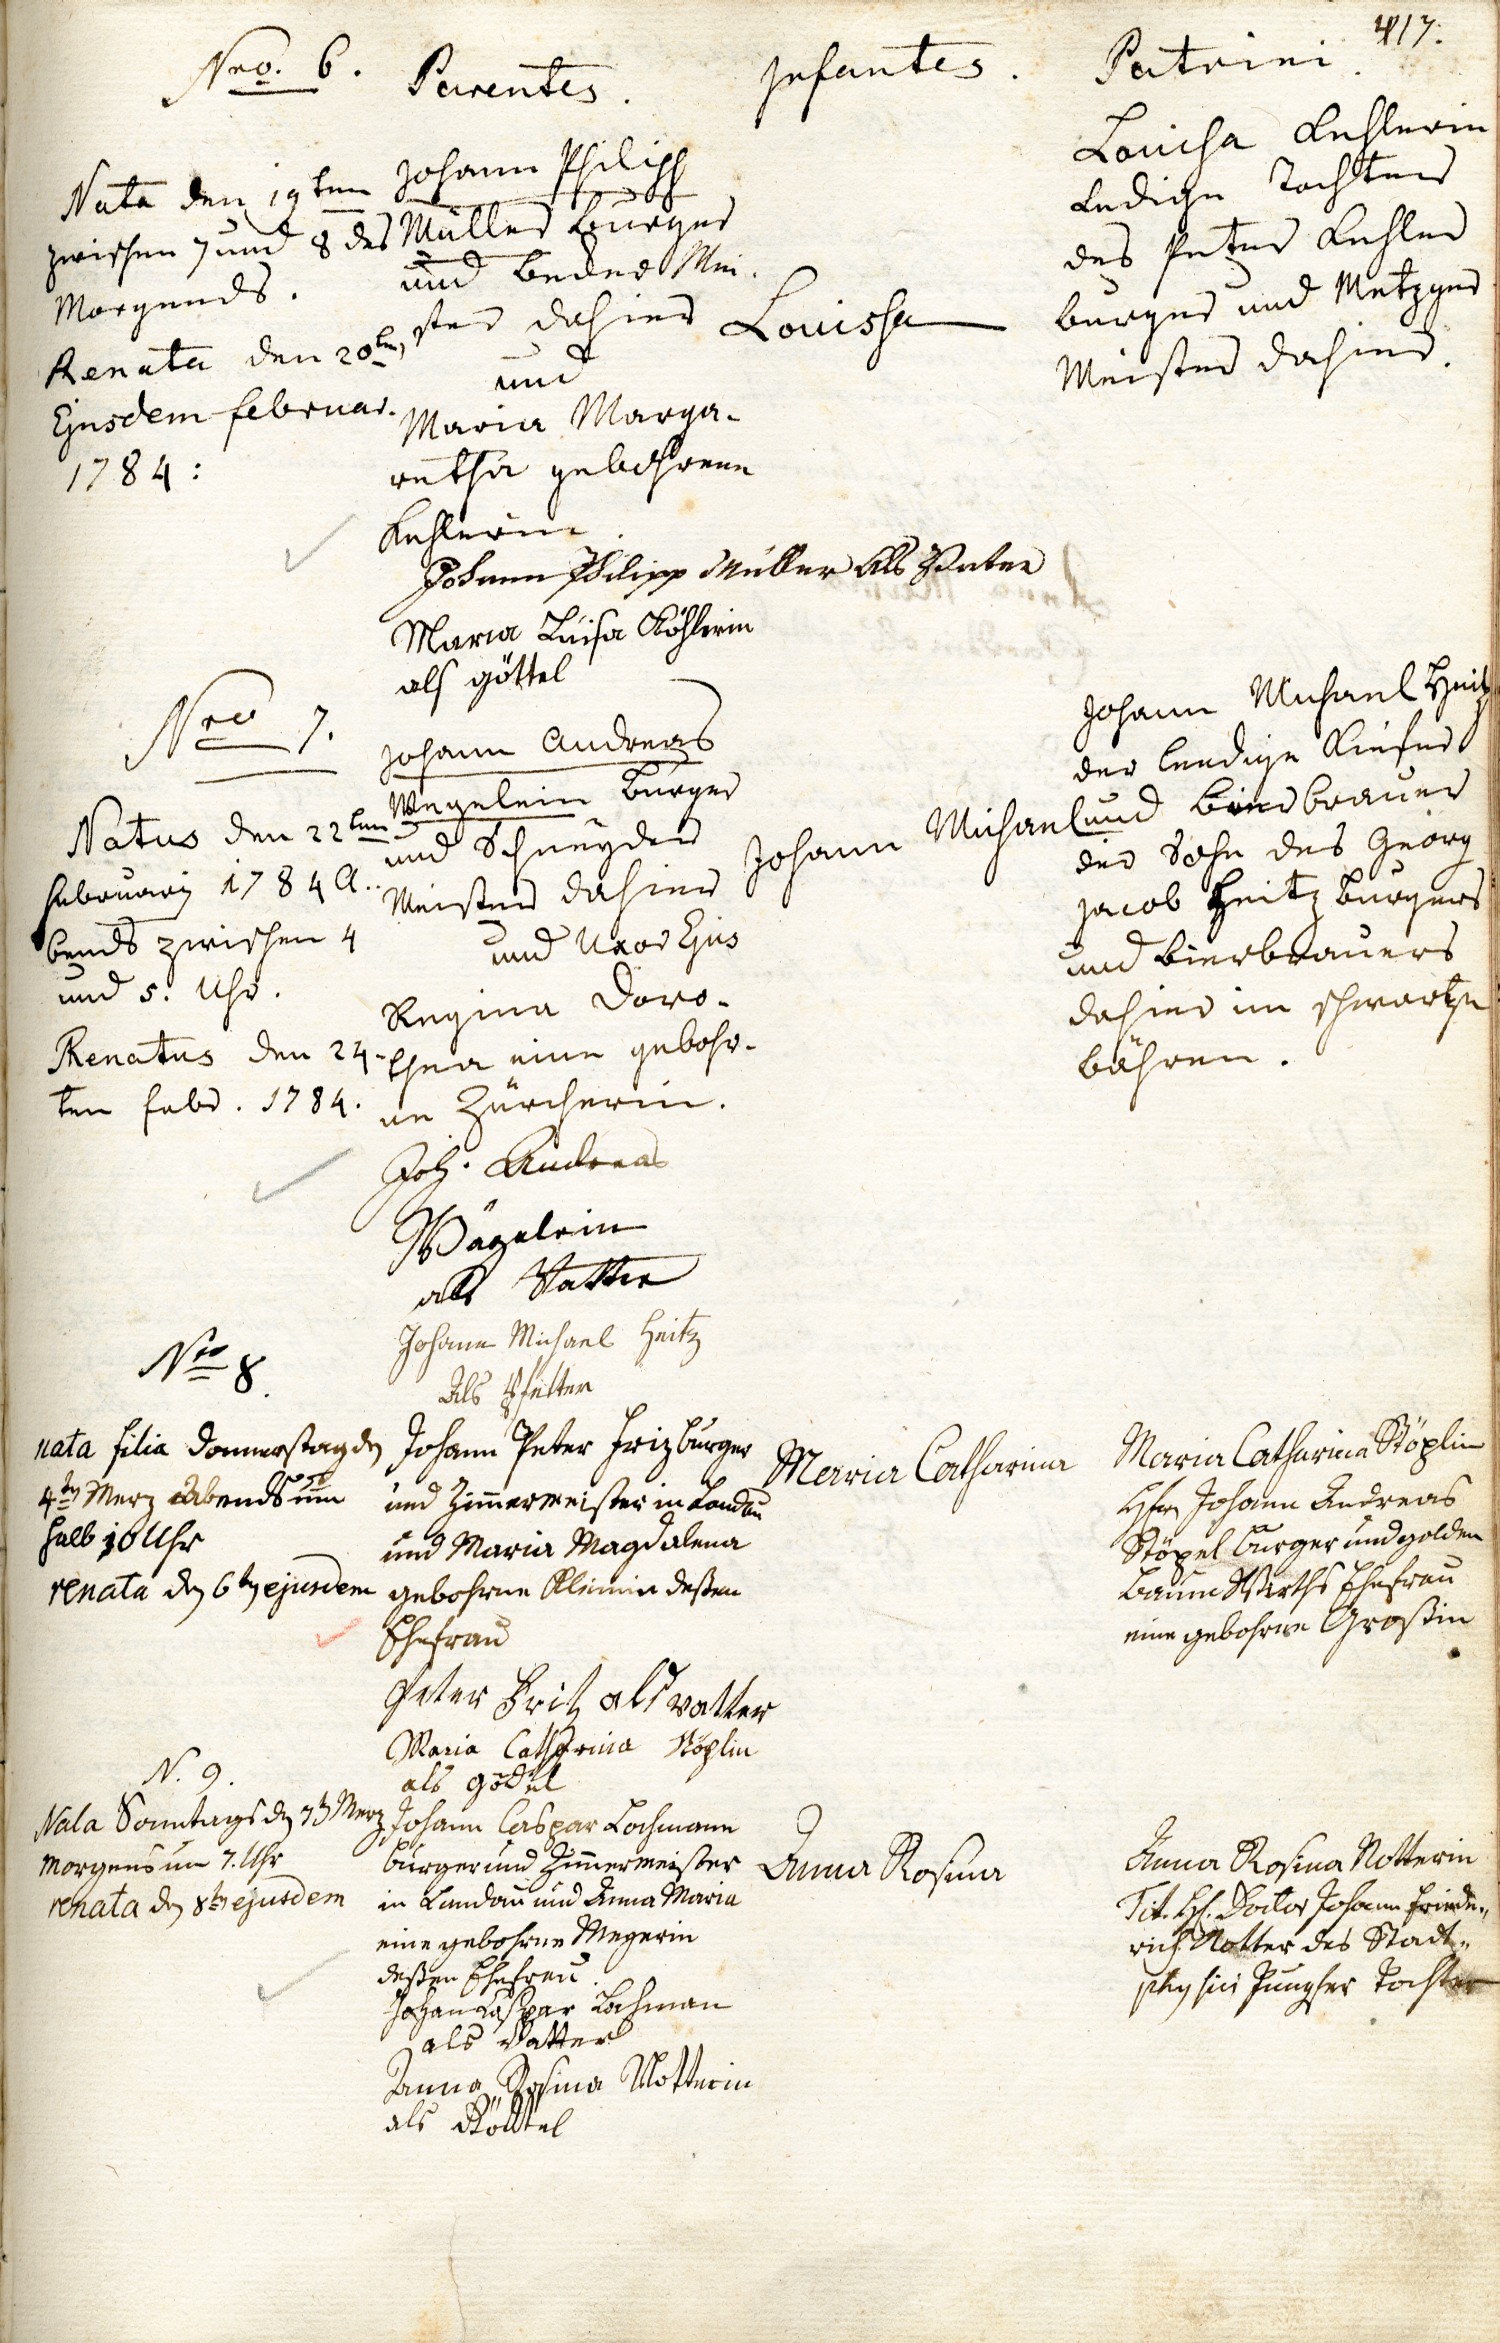 417.
Nro. 6.
Parentes.
Infantes.
Patrini.
Nata den 19ten
zwischen 7 und 8 des
Morgends.
Renata den 20ten
Ejusdem februar.
1784:
Johann Philipp
Müller Burger
und Beder Mei-
ster dahier
und
Maria Marga-
retha gebohrene
Kehlerin
Johann Philipp Müller Als Vater
Maria Luisa Köhlerin
als göttel
Louissa
Louisa Kehlerin
Ledige Tochter
des Peter Kehler
burger und Metzger
Meister dahier.
Nro 7.
Natus den 22ten
februarij 1784 A..
bends zwischen 4
und 5. Uhr.
Renatus den 24-
ten febr. 1784.
Johann Andreas
Wegelein Burger
und Schneyder
Meister dahier
und Uxor Ejus
Regina Doro-
thea eine gebohr-
ne Zürcherin.
Joh. Andreas
Wägelein
als Vatter
Johann Michael Heitz
Als Pfetter
Johann Michael
Johann Michael Heitz
der leedige Kiefer
und Bierbrauer
der Sohn des Georg
Jacob Heitz Burgers
und Bierbrauers
dahier im schwartze
bähren.
Nro 8.
nata filia Donnerstag den
4ten Merz Abends um
halb 10 Uhr
renata den 6ten ejusdem
Johann Peter Friz burger
und Zimmermeister in Landau
und Maria Magdalena
gebohrne Kleinin deßen
Ehefrau
Peter Fritz als vatter
Maria Catharina Stöplin
als gödel
Maria Catharina
Maria Catharina Stöplin
Johann Andreas
Stöpel burger und golden
Baum Wirths Ehefrau
eine gebohrne Großin
N. 9.
Nata Sonntags den 7ten Merz
Morgens um 7. Uhr
renata den 8ten ejusdem
Johann Caspar Lochmann
burger und Zimmermeister
in Landau und Anna Maria
eine gebohrne Megerin
deßen Ehefrau.
Johan Caspar Lochman
als Vatter
Anna Rosina Notterin
als Göttel
Anna Rosina
Anna Rosina Notterin
Tit. H. Doctor Johann Friede-
rich Notter des Stadt-
physici Jungfer Tochter